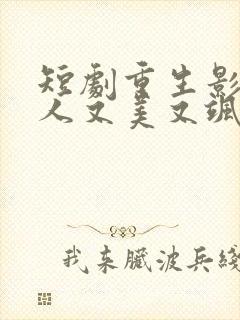 短劇重生影
人又美又颯
我来臓波兵綫